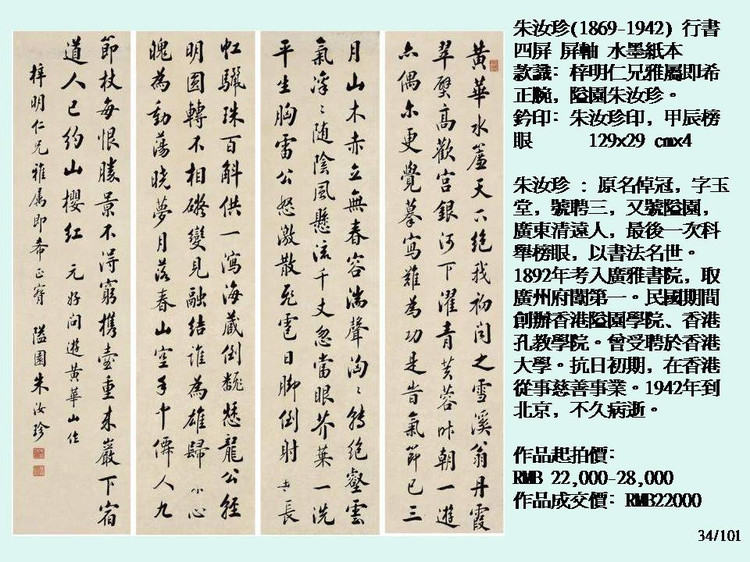 黃華水簾天下絕我初聞之雪溪翁丹霞
翠壁高歡宮銀河下濯青芙蓉昨朝一遊
亦偶尔更覺摹寫難為功是時氣節已三
月山木赤立無春容湍聲洶〻轉絕壑雲
氣浮〻隨陰風懸流千丈忽當眼芥蒂一洗
平生胸雷公怒激散飛雹日脚倒射垂長
虹驪珠百斛供一瀉海藏倒翻愁龍公輕
明圓轉不相礙變見融結誰為雄歸來心
魄為動蕩曉夢月落春山空手中僊人九
節杖每恨勝景不得窮攜壺重來巖下宿
道人已約山櫻紅 元好問遊黃華山作
梓明仁兄雅属即希正賓 隘園朱汝珍
朱汝珍(1869-1942) 行書
四屏 屏軸 水墨紙本
款識: 梓明仁兄雅屬即希
正腕, 隘園朱汝珍。
鈐印: 朱汝珍印, 甲辰榜
眼 129x29 cmx4
朱汝珍 : 原名倬冠, 字玉
堂, 號聘三, 又號隘園,
廣東清遠人, 最後一次科
舉榜眼, 以書法名世。
1892年考入廣雅書院, 取
廣州府闈第一。民國期間
創辦香港隘園學院、香港
孔教學院。曾受聘於香港
大學。抗日初期, 在香港
從事慈善事業。1942年到
北京, 不久病逝。
作品起拍價:
RMB 22,000-28,000
作品成交價: RMB22000
34/101